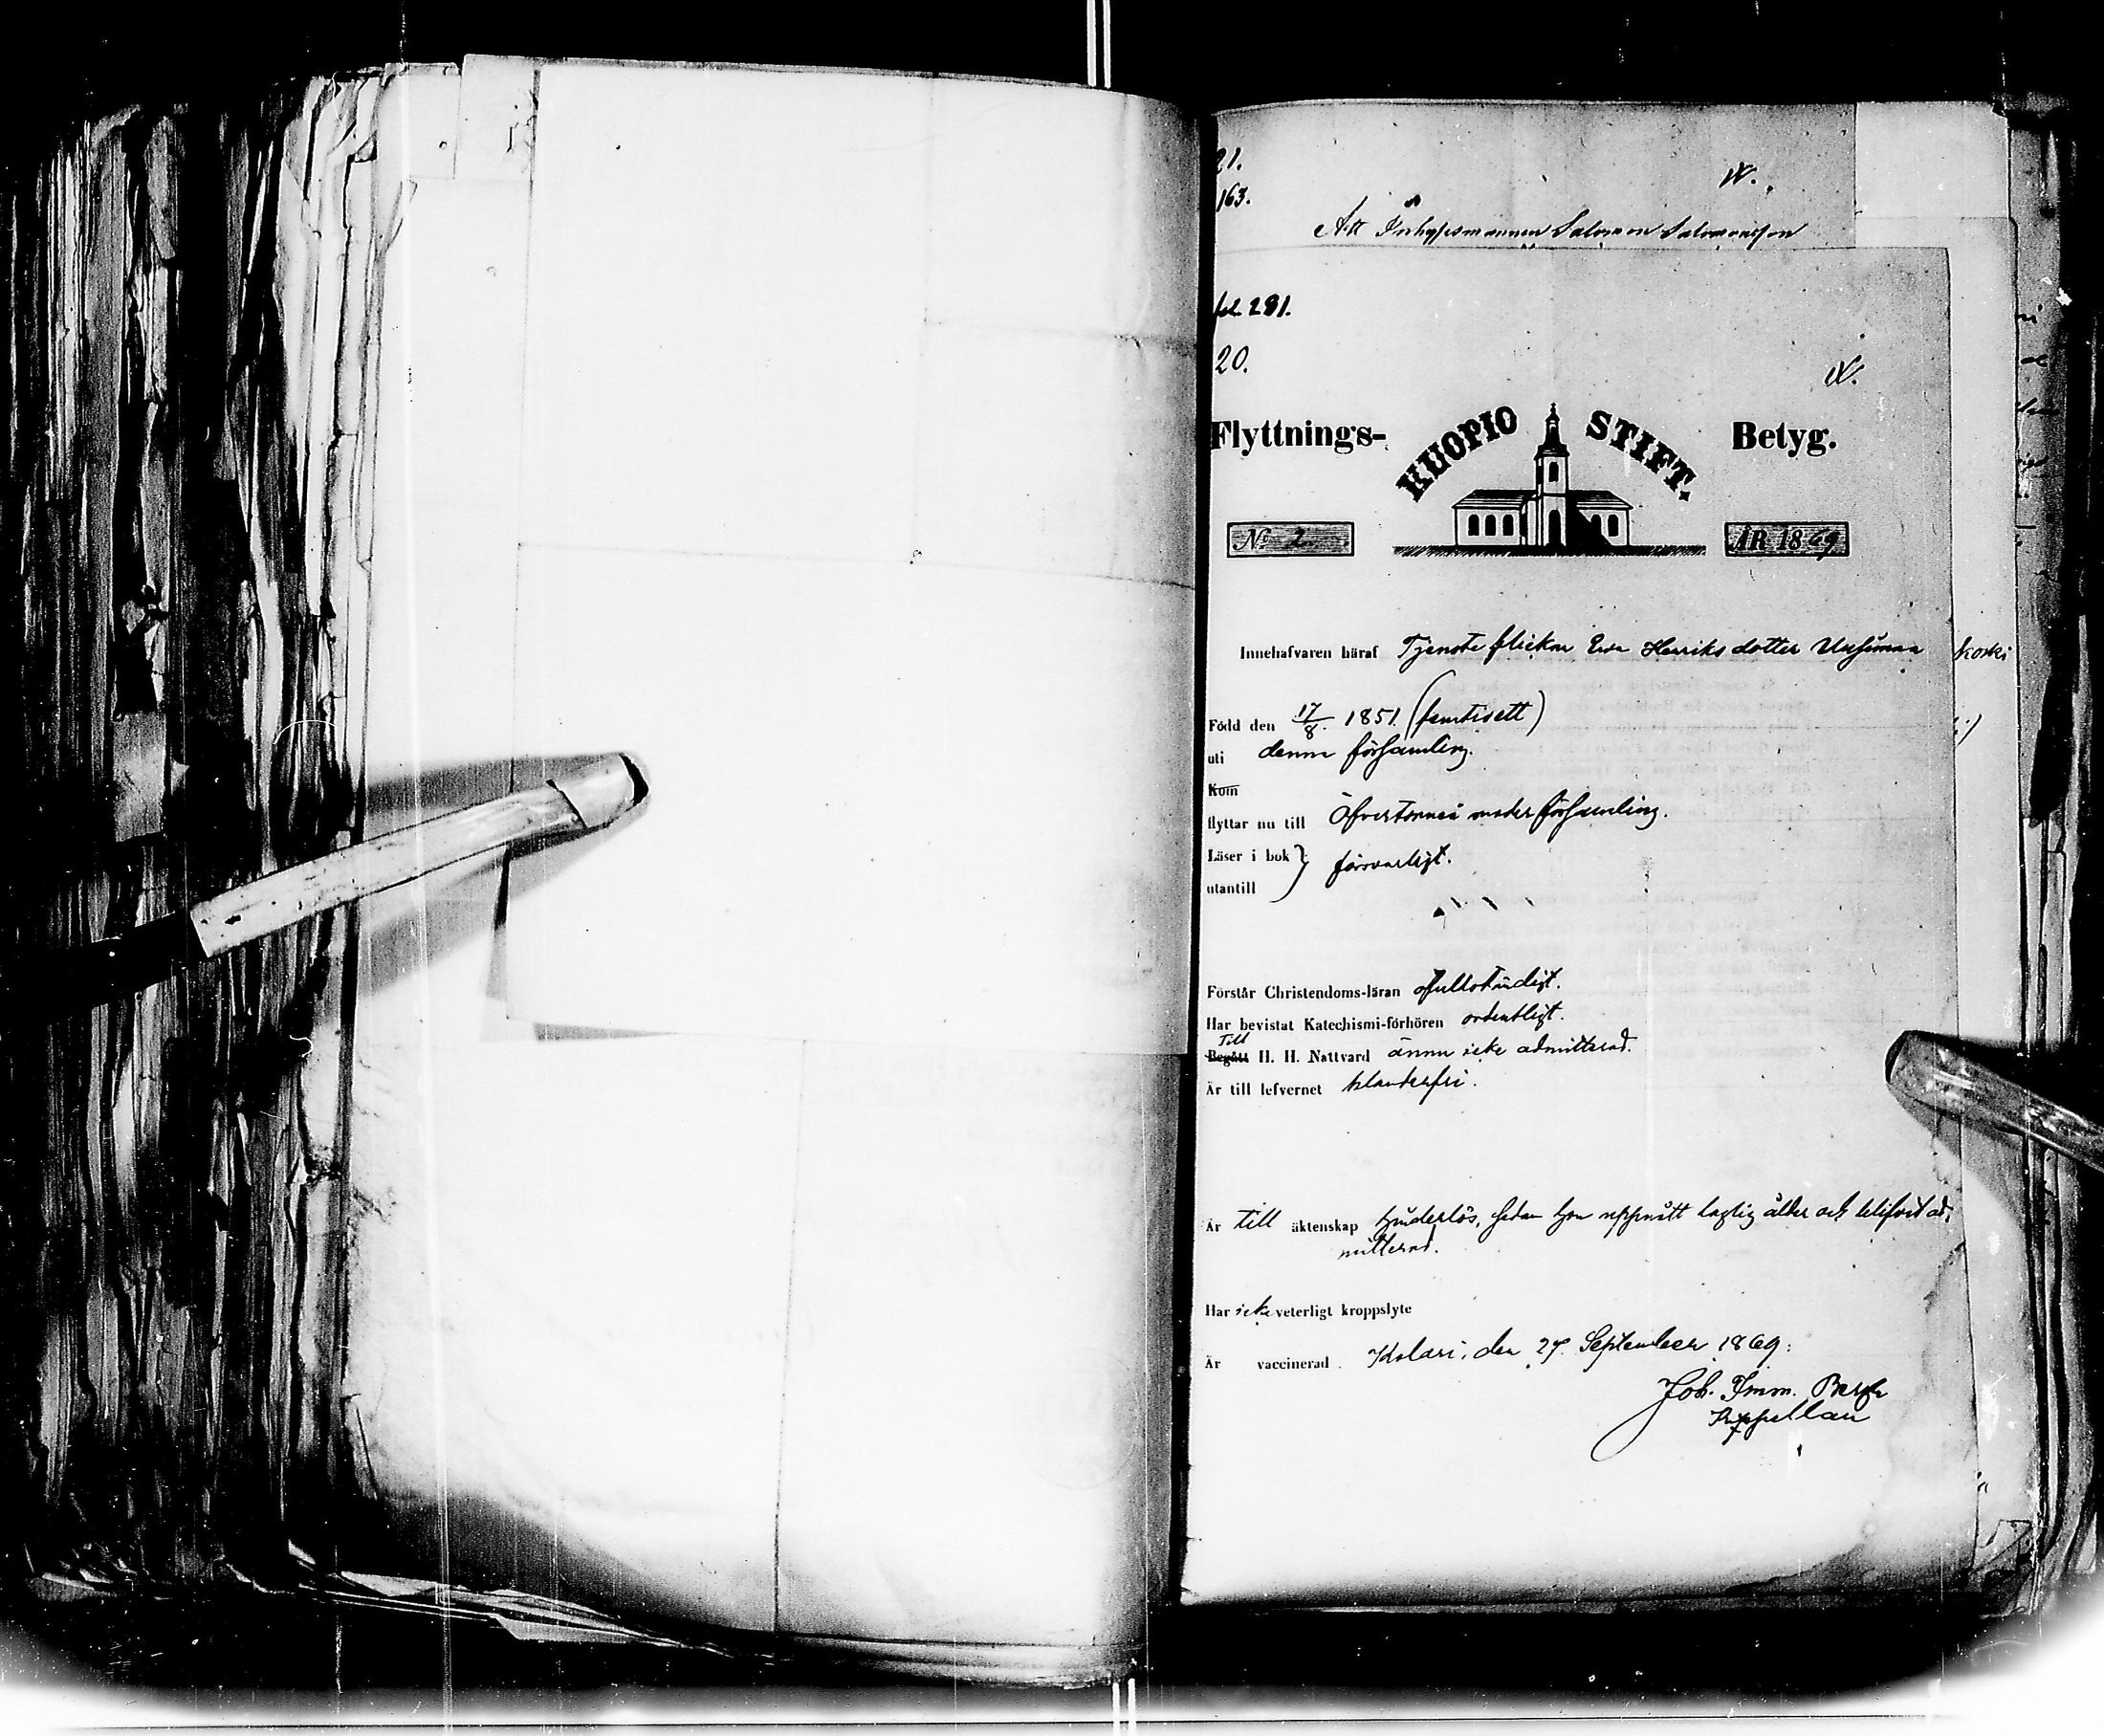 21.
163.
N.
Att Inhysesmannen Salomon Salomonsson
fol. 281.
20.
N.
Flyttnings- KUOPIO STIFT. Betyg.
No 2. ÅR 1869
Innehafvaren häraf Tjenste flickan Eva Henriksdotter Uusimaa
koski
Född den 17/8 1851 (femtioett)
uti denna församling.
Kom
flyttar nu till Öfvertorneå moderförsamling.
Läser i bok } försvarligt.
utantill
Förstår Christendoms-läran ofullständigt.
Har bevistat Katechismi-förhören ordentligt.
Till
Begått H. H. Nattvard ännu icke admitterad.
Är till lefvernet klanderfri.
Är till äktenskap hinderlös, sedan hon uppnått laglig ålder och blifvit ad-
mitterad.
Har icke veterligt kroppslyte
Är vaccinerad. Kolari, den 27 September 1869:
Joh. Imm. Bergh
Kappellan